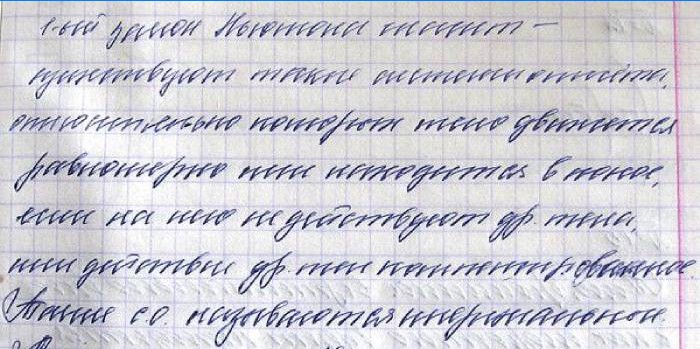 1-ый закон Ньютона гласит –
существуют такие системы отсчёта,
относительно которых тело движется
равномерно или находится в покое,
если на него не действуют др. тела,
или действие др. тел компенсированное.
Такие с.о. называются инерциальной